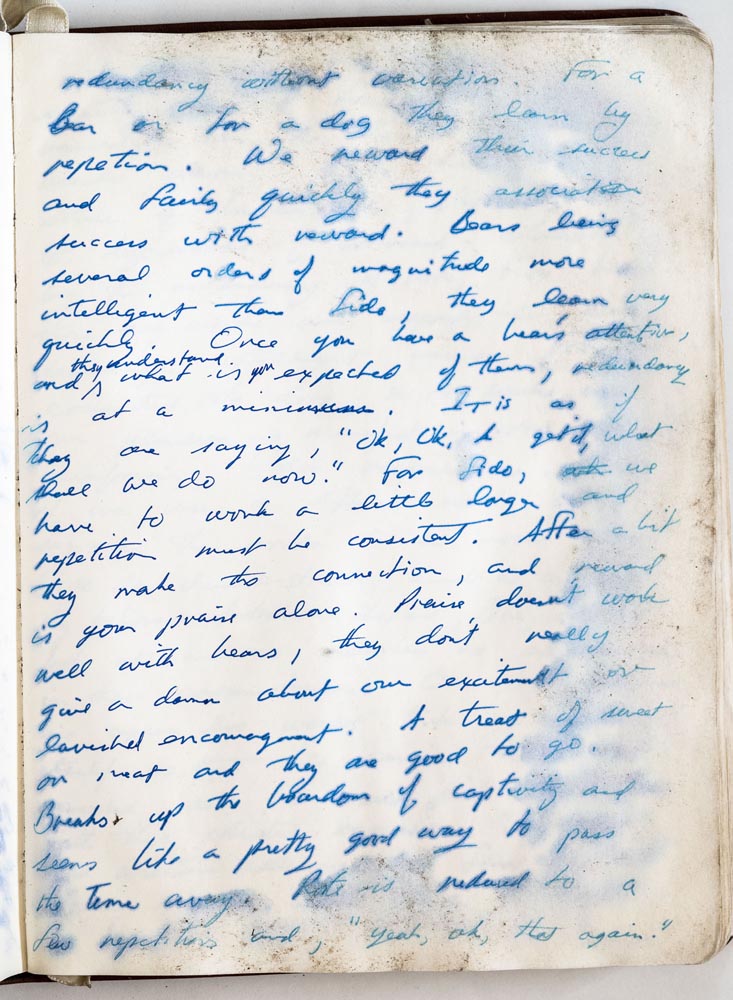 redundancy without variation. For a
Bear or for a dog they learn by
repetion. We reward their success
and fairly quickly they association
success with reward. Bears being
several orders of magnitude more
intelligent than Fido, they learn very
quickly. Once you have a bear's attention,
and they understand what is you expected of them, redundancy
is at a minimum. It is as if
they are saying, "Ok, Ok, I get it, what
shall we do now." For Fido, we
have to work a little longer and
repetition must be consistent. After a bit
they make the connection, and reward
is your praise alone. Praise, doesn't work
well with bears, they don't really
give a damn about our excitement or
lavished encouragment. A treat of sweet
or meat and they are good to go.
Breaks up the boardom of captivity and
seems like a pretty good way to pass
the time away. Rote is reduced to a
few repetitions and, "yeah, ok, that again."